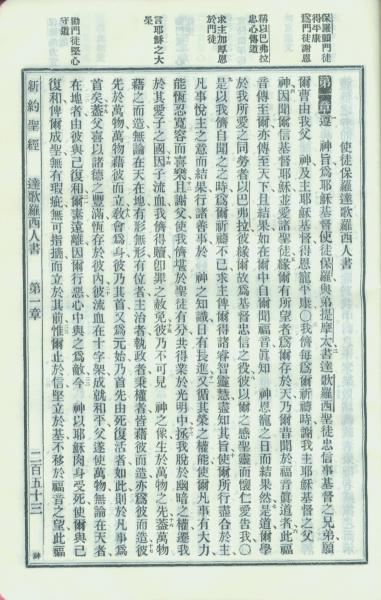 保羅願門徒
得平康
爲門徒謝恩
稱以巴弗拉
忠心傳道
求主加厚恩
於門徒
言耶穌之大
榮
勸門徒堅心
守道
使徒保羅達歌羅西人書
第一章遵 神旨爲耶穌基督使徒保羅與弟提摩太書達歌羅西聖徒忠信事基督之兄弟願
爾曹由我父 神及主耶穌基督得恩寵平康〇我儕每爲爾祈禱時謝我主耶穌基督之父
神因聞爾信基督耶穌並愛諸聖徒緣爾有所望者爲爾存於天乃爾昔聞於福音眞道者此福
音傳至爾亦傳至天下且結果如在爾中自爾聞福音眞知 神恩寵之日而結果然是道爾學
於我所愛之同勞者以巴弗拉彼緣爾故爲基督忠信之役彼以爾之感聖靈而懷仁愛告我〇
是以我儕自聞之之時爲爾祈禱不已求主俾爾得諸睿智靈慧盡知其旨使爾所行盡合於主
凡事悅主之意而結果行諸善事於 神之知識日有長進又循其榮之權能使爾凡事有大力
能恆忍寬容而喜樂且謝父使我儕堪於聖徒有分共得業於光明中拯我脫於幽暗之權遷我
於其愛子之國因子流血我儕得贖卽罪之赦免彼乃不可見 神之像生於萬物之先蓋萬物
藉之而造無論在天在地有形無形有位者主治者執政者秉權者皆藉彼而造亦爲彼而造彼
先於萬物萬物藉彼而立教會爲身彼乃其首又爲元始乃首先由死復活者如此則於凡事爲
首矣蓋父喜以諸德之豐滿恆存於彼內彼流血在十字架成就和平父遂使萬物無論在天者
在地者由彼與己復和爾素遠離因爾行惡心中與之爲敵今 神以耶穌肉身受死使爾與己
復和俾爾成聖無有瑕疵無可指摘而立於其前惟爾止於信堅立於基不移於福音之望此福
新約聖經 達歌羅西人書 第一章 二百五十三